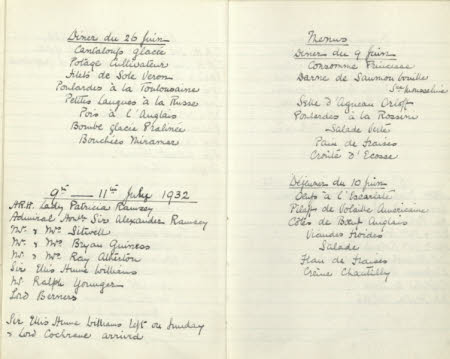 Diner du 26 Juin
Cantaloup glacée
Potage Cultivateur
Filets de Sole Veron
Poulardes à la Toulousaine
Petites Langues à la Russe
Pois à l'Anglais
Bombe glacée Pralinée
Bouchées Miramar
9th — 11th July 1932
H.R.H. Lady Patricia Ramsay
Admiral Honble Sir Alexander Ramsay
Mr. & Mrs. Sitwell
Mr. & Mrs. Bryan Guiness
Mr. & Mrs. Ray Atherton
Sir Ellis Hume Williams
Mr. Ralph Younger
Lord Berners
Sir Ellis Hume Williams left on Sunday
& Lord Cochrane arrived
Menus
Diner du 9 Juin
Consommé Princesse
Darne de Saumon bouillie
Sce mousseline
Selle d'Agneau
Poulardes à la Rossini
Salade Verte
Pain de fraises
Croûte d'Ecosse
Déjeuner du 10 Juin
Oeufs à l'Ecarlate
Pilaff de Volaille Américaine
Côtes de Boeuf Anglais
Viandes froides
Salade
Flan de Fraises
Crème Chantilly